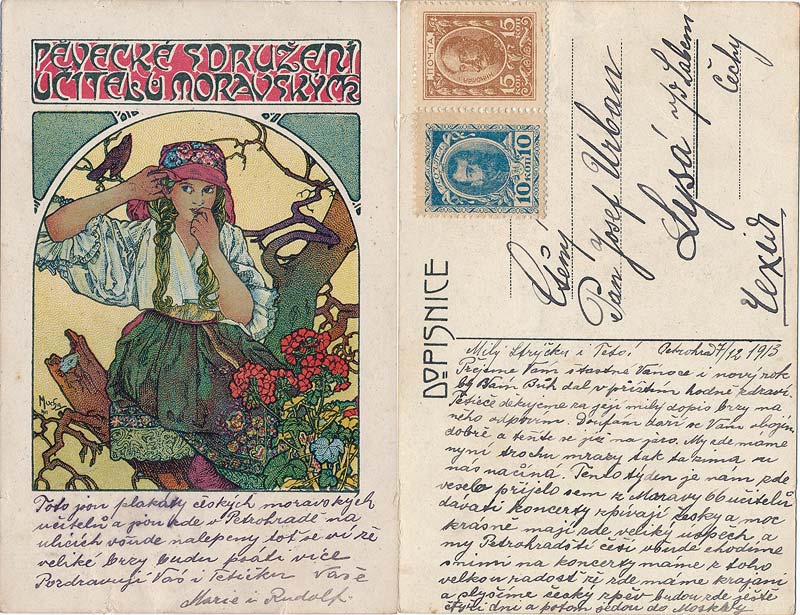 PĚVECKÉ SDRUŽENÍ
UČITELŮ MORAVSKÝCH
Mucha
Toto jsou plakáty českých moravských
učitelů a jsou zde v Petrohradě na
ulicích všude nalepeny tot se ví že
veliké brzy budu psáti více
Pozdravují Vás i Tetičku Vaše
Marie i Rudolf.
ПОЧТА
15 15
КОП
10 10
КОП
DOPISNICE
Ctěný
Pán Josef Urban
Lysá n/d Labem
Čechy
Milý Strýčku i Teto! Petrohrad 7/12 1913
Přejeme Vám šťastné Vánoce i nový rok
by Vám Bůh dal v příštím hodně zdraví.
Tetičce děkujeme za její milý dopis brzy na
něho odpovím. Doufám daří se Vám oboum
dobře a těšíte se již na jaro. My zde máme
nyní trochu mrazy tak ta zima su
nás načíná. Tento týden je nám zde
veselo přijelo sem z Moravy 66 učitelů
dávati koncerty zpívají hezky a moc
krásně mají zde veliký uspěch, a
my Petrohradští češi všude chodíme
s nimi na koncerty máme z toho
velkou radost že zde máme krajani
a slyšíme český zpěv budou zde ještě
čtyři dni a potom jedou do Moskvy